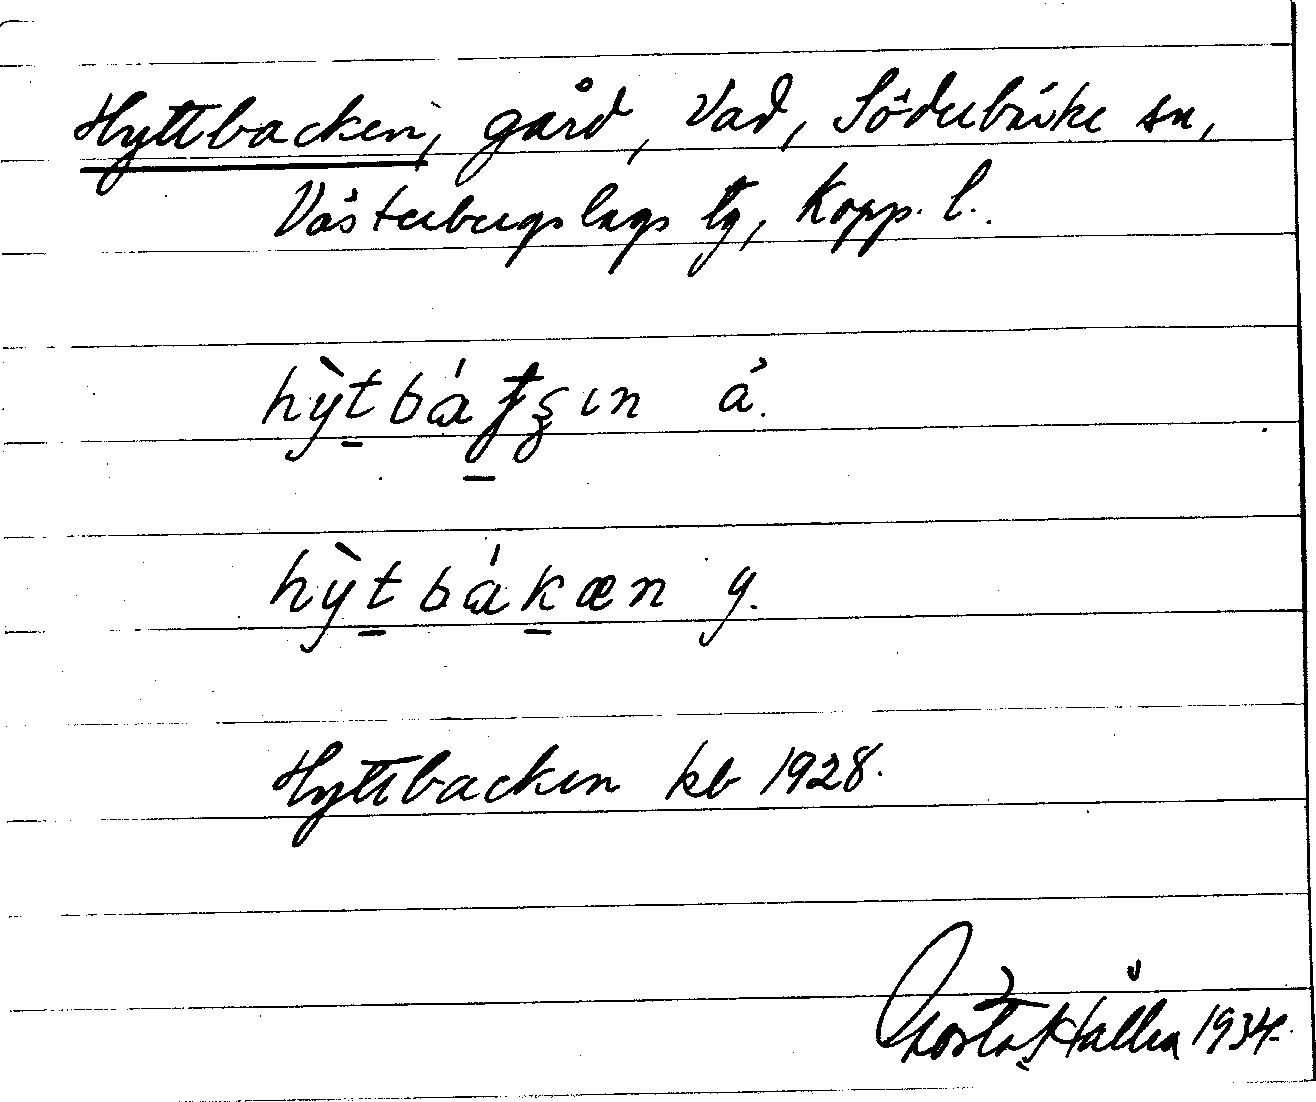 Hyttbacken, gård, Vad, Söderbärke sn,
Västerbergslags tg, Kopp. l.
hỳtbá ın å.
hỳtbákæn y.
Hyttbacken kb 1928.
Gösta Hållen 1934.